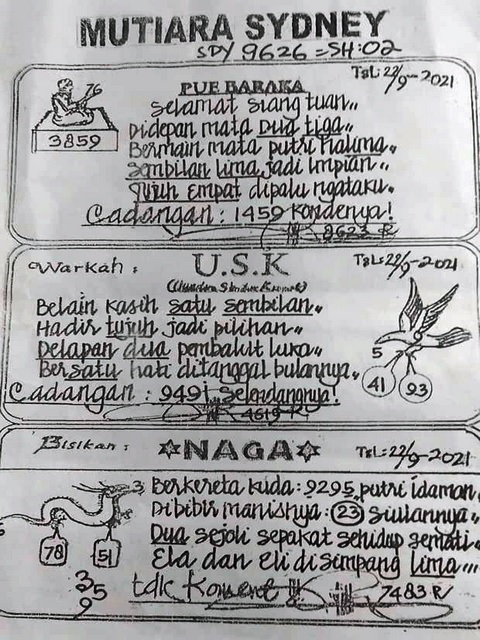 MUTIARA SYDNEY
SDY 9626 = SH:02
TgL: 22/9-2021
PUE BARAKA
76
3859
Selamat siang tuan..
Didepan mata Dua tiga..
Bermain mata putri halima..
Sembilan lima jadi impian..
Tujuh Empat dipalu ngataku.
Cadangan: 1459 Kondenya!
8623 R
Warkah:
U.S.K
TgL: 22/9-2021
Belain kasih satu sembilan..
Hadir tujuh jadi pilihan..
Delapan dua pembalut luka..
Bersatu hati ditanggal bulannya.
Cadangan: 9491 Selendangnya!
4619 R
5
41
93
Bisikan:
NAGA
TgL: 22/9-2021
Berkereta kuda: 9295 putri idaman
Dibibir manisnya: 23 siulannya..
Dua sejoli sepakat sehidup semati..
Ela dan eli disimpang lima...
3
78
51
3
5
9
tdk Konsent
7483 R